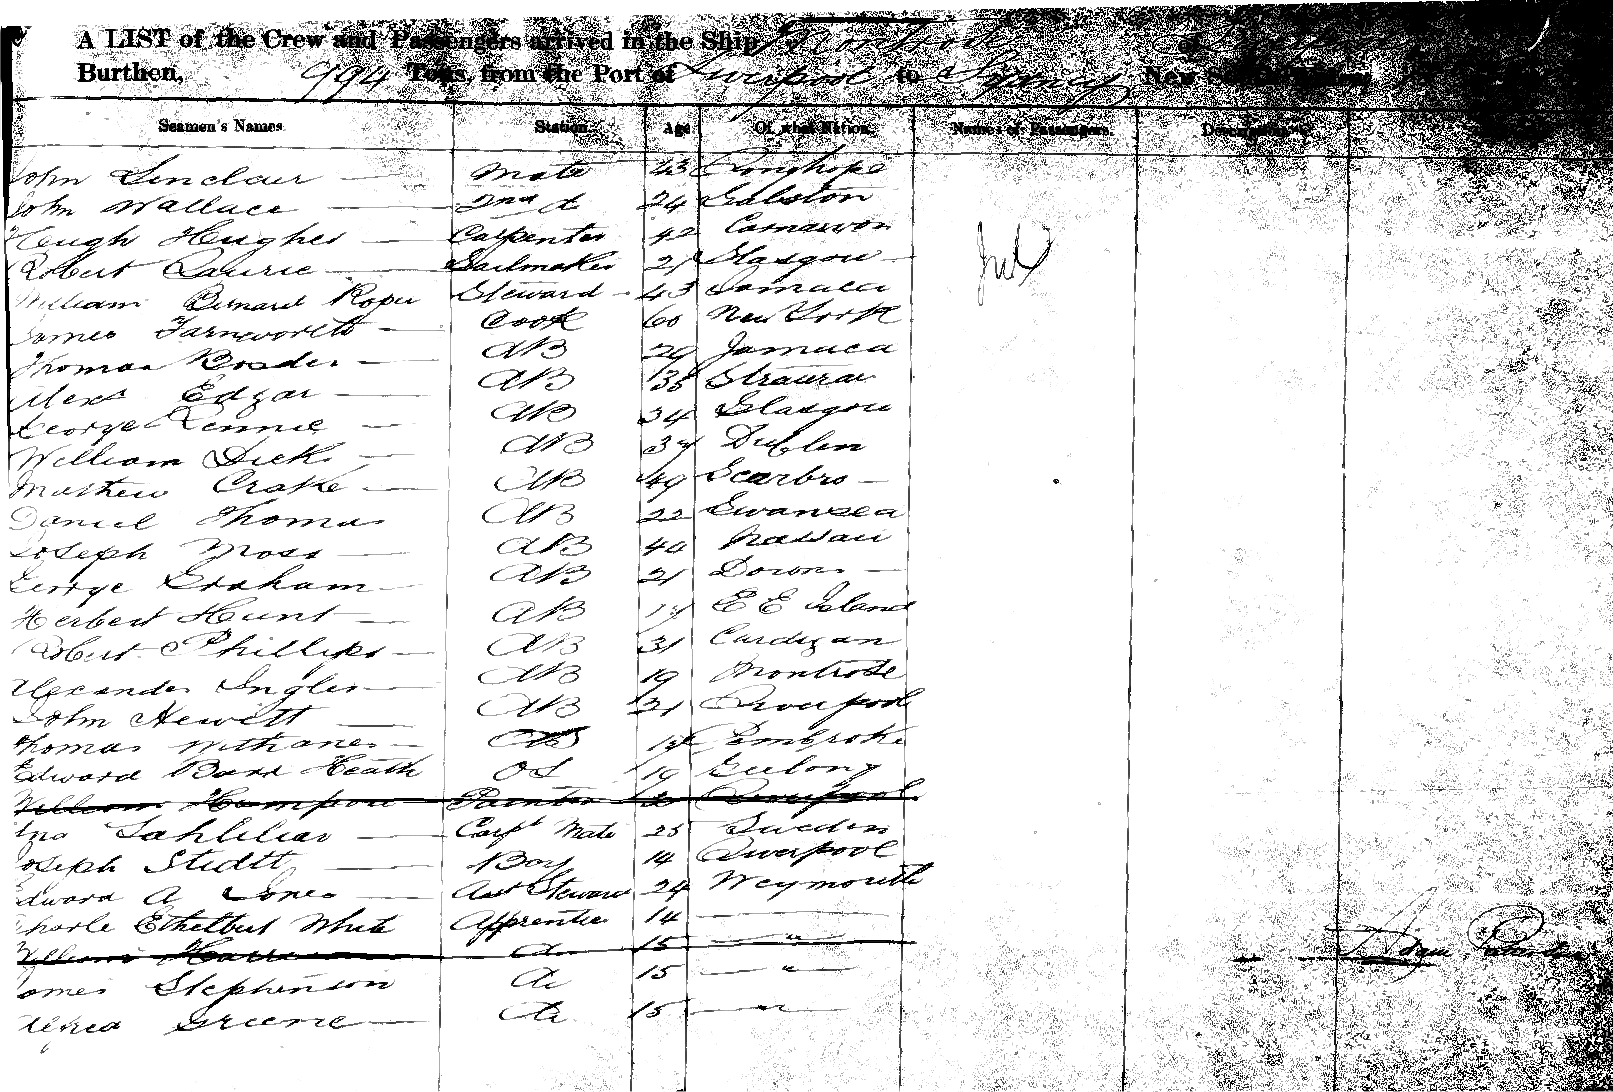 A LIST of the Crew and Passengers arrived in the Ship of
Burthen, 994 Tons, from the Port of Liverpool to Sydney New South Wales,
Seamen's Names Station Age Of what Nation Names of Passengers Descriptions
John Sinclair Mate 43
John Wallace 2nd do 24 Galston
Hugh Hughes Carpenter 42 Carnarvon
Robert Laurie Sailmaker 21 Glasgow
William Bernard Roper Steward 43 Jamaica
James Farnworth Cook 60 New York
Thomas AB 29 Jamaca
Alexr Edgar AB 38
George Rennie AB 34 Glasgow
William Dick AB 37 Dublin
Mathew Crake AB 49 Scarbro
Daniel Thomas AB 22 Swansea
Joseph Moss AB 40 Nassau
George Graham AB 21 Down
Herbert Hunt AB E E Island
Robert Phillips AB 31 Cardigan
Alexander Ingles AB 19 Montrose
John Hewitt AB 31 Liverpool
Thomas Pembroke
Edward Heath OS 19 Geelong
William Painter Liverpool
Carpt Mate 25 Sweden
Joseph Boy 14 Liverpool
Edward A Jones Asst Steward 24 Weymouth
Charle Ethelbert White Apprentice 14
William 15 "
James Stephenson 15 "
Alfred Greene 15 "